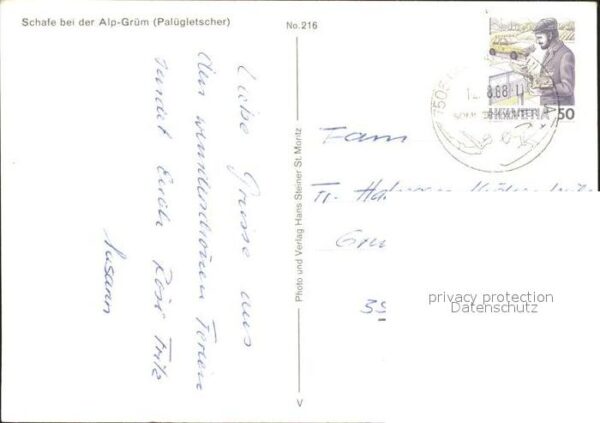 Schafe bei der Alp-Grüm (Palügletscher)
No. 216
Liebe Grüsse aus
den wunderschönen Ferien
sendet Euch Rösi Fritz
Susann
Photo und Verlag Hans Steiner St. Moritz
V
HELVETIA 50
7505
8.88
Fam
privacy protection
Datenschutz